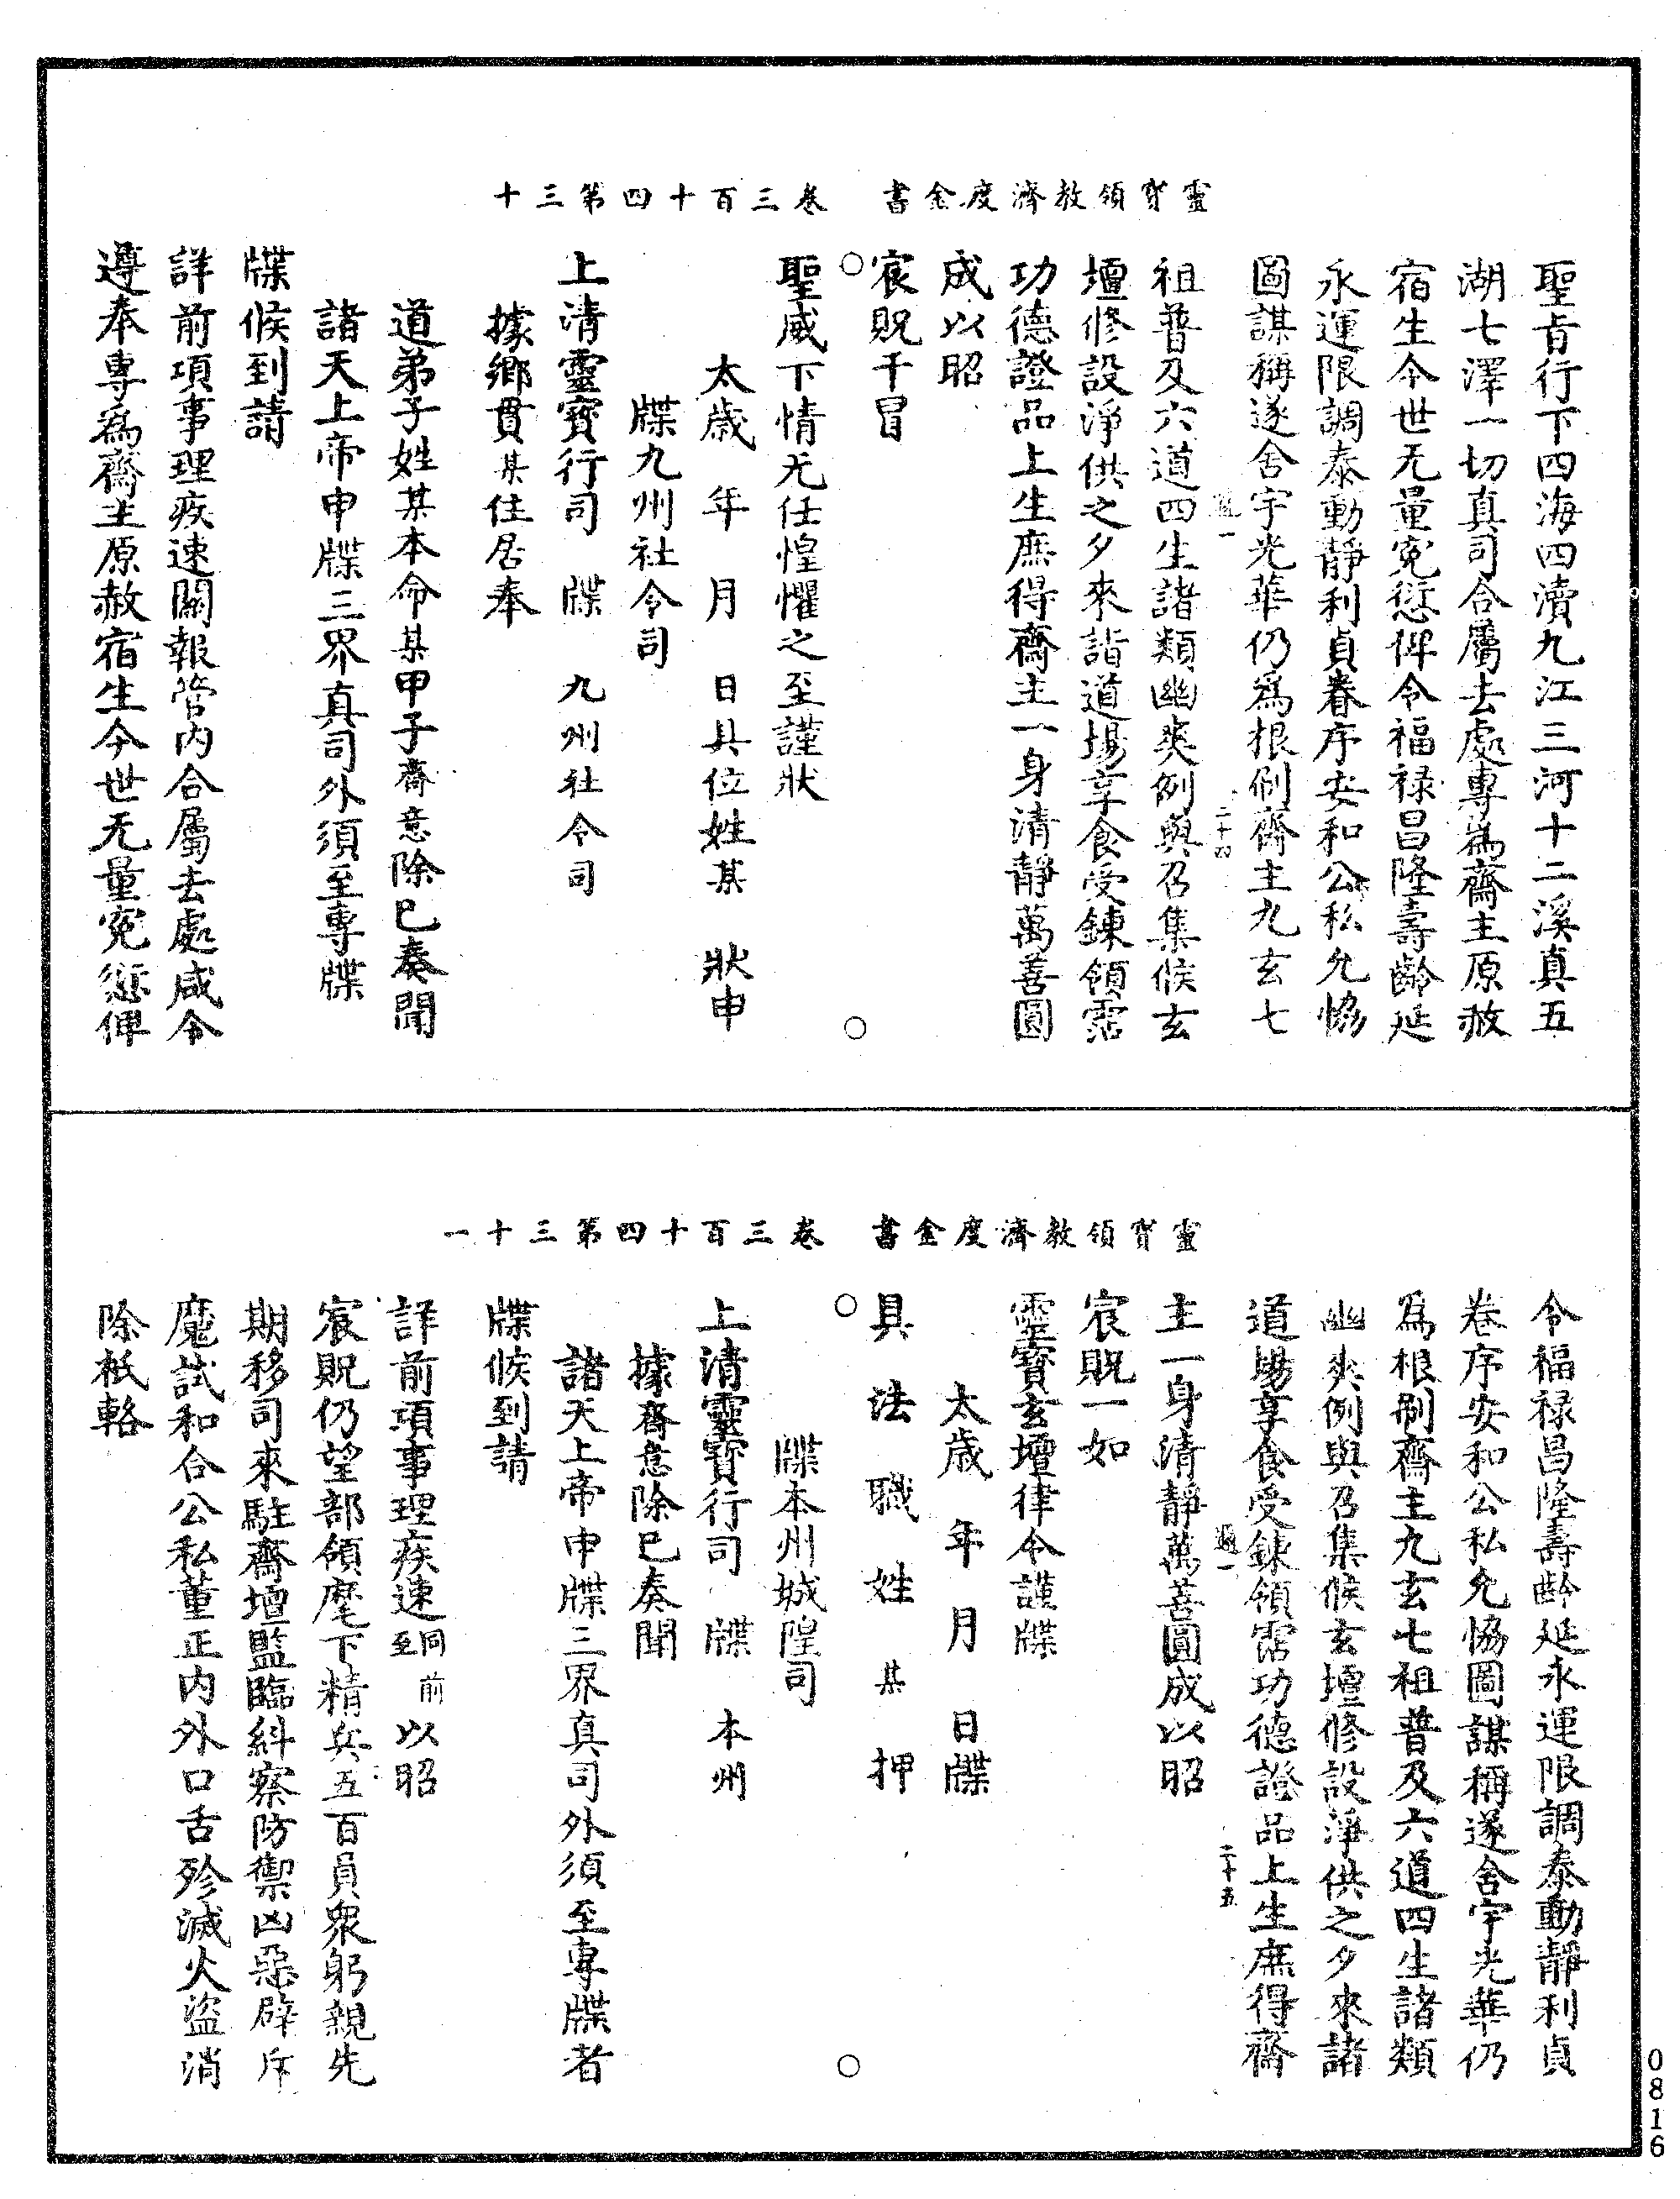 靈寶領教濟度金書　卷三百十四第三十
聖旨行下四海四瀆九江三河十二溪真五
湖七澤一切真司合屬去處專為齋主原赦
宿生今世无量寃愆俾令福禄昌隆壽齡延
永運限調泰動靜利貞眷序安和公私允恊
圖謀稱遂舍宇光華仍爲根刷齋主九玄七
祖普及六道四生諸類幽爽例與召集候玄
壇修設淨供之夕來詣道場享食受鍊領霑
功德證品上生庶得齋主一身清靜萬善圓
成以昭
宸貺干冒
聖威下情无任惶懼之至謹狀
太歲　年　月　日具位姓某　狀申
牒九州社令司
上清靈寶行司　牒　九州社令司
據鄉貫某住居奉
道弟子姓某本命某甲子齋意除已奏聞
諸天上帝申牒三界真司外須至專牒
牒候到請
詳前項事理疾速關報管内合屬去處咸令
遵奉專為齋主原赦宿生今世无量寃愆俾
二十四
靈寶領教濟度金書　卷三百十四第三十一
令福禄昌隆壽齡延永運限調泰動靜利貞
卷序安和公私允恊圖謀稱遂舍宇光華仍
爲根刷齋主九玄七祖普及六道四生諸類
幽爽例與召集候玄壇修設淨供之夕來諸
道場享食受鍊領霑功德證品上生庶得齋
主一身清靜萬善圓成以昭
宸貺一如
靈寶玄壇律令謹牒
太歲　年　月　日牒
具　法　職　姓　某　押
牒本州城隍司
上清靈寶行司　牒　本州
據齋意除已奏聞
諸天上帝申牒三界真司外須至專牒者
牒候到請
詳前項事理疾速同前至以昭
宸貺仍望部領麾下精兵五百員衆躬親先
期移司來駐齋壇監臨糾察防禦凶惡辟斥
魔試和合公私董正内外口舌殄滅火盜消
除袛輅
二十五
0816